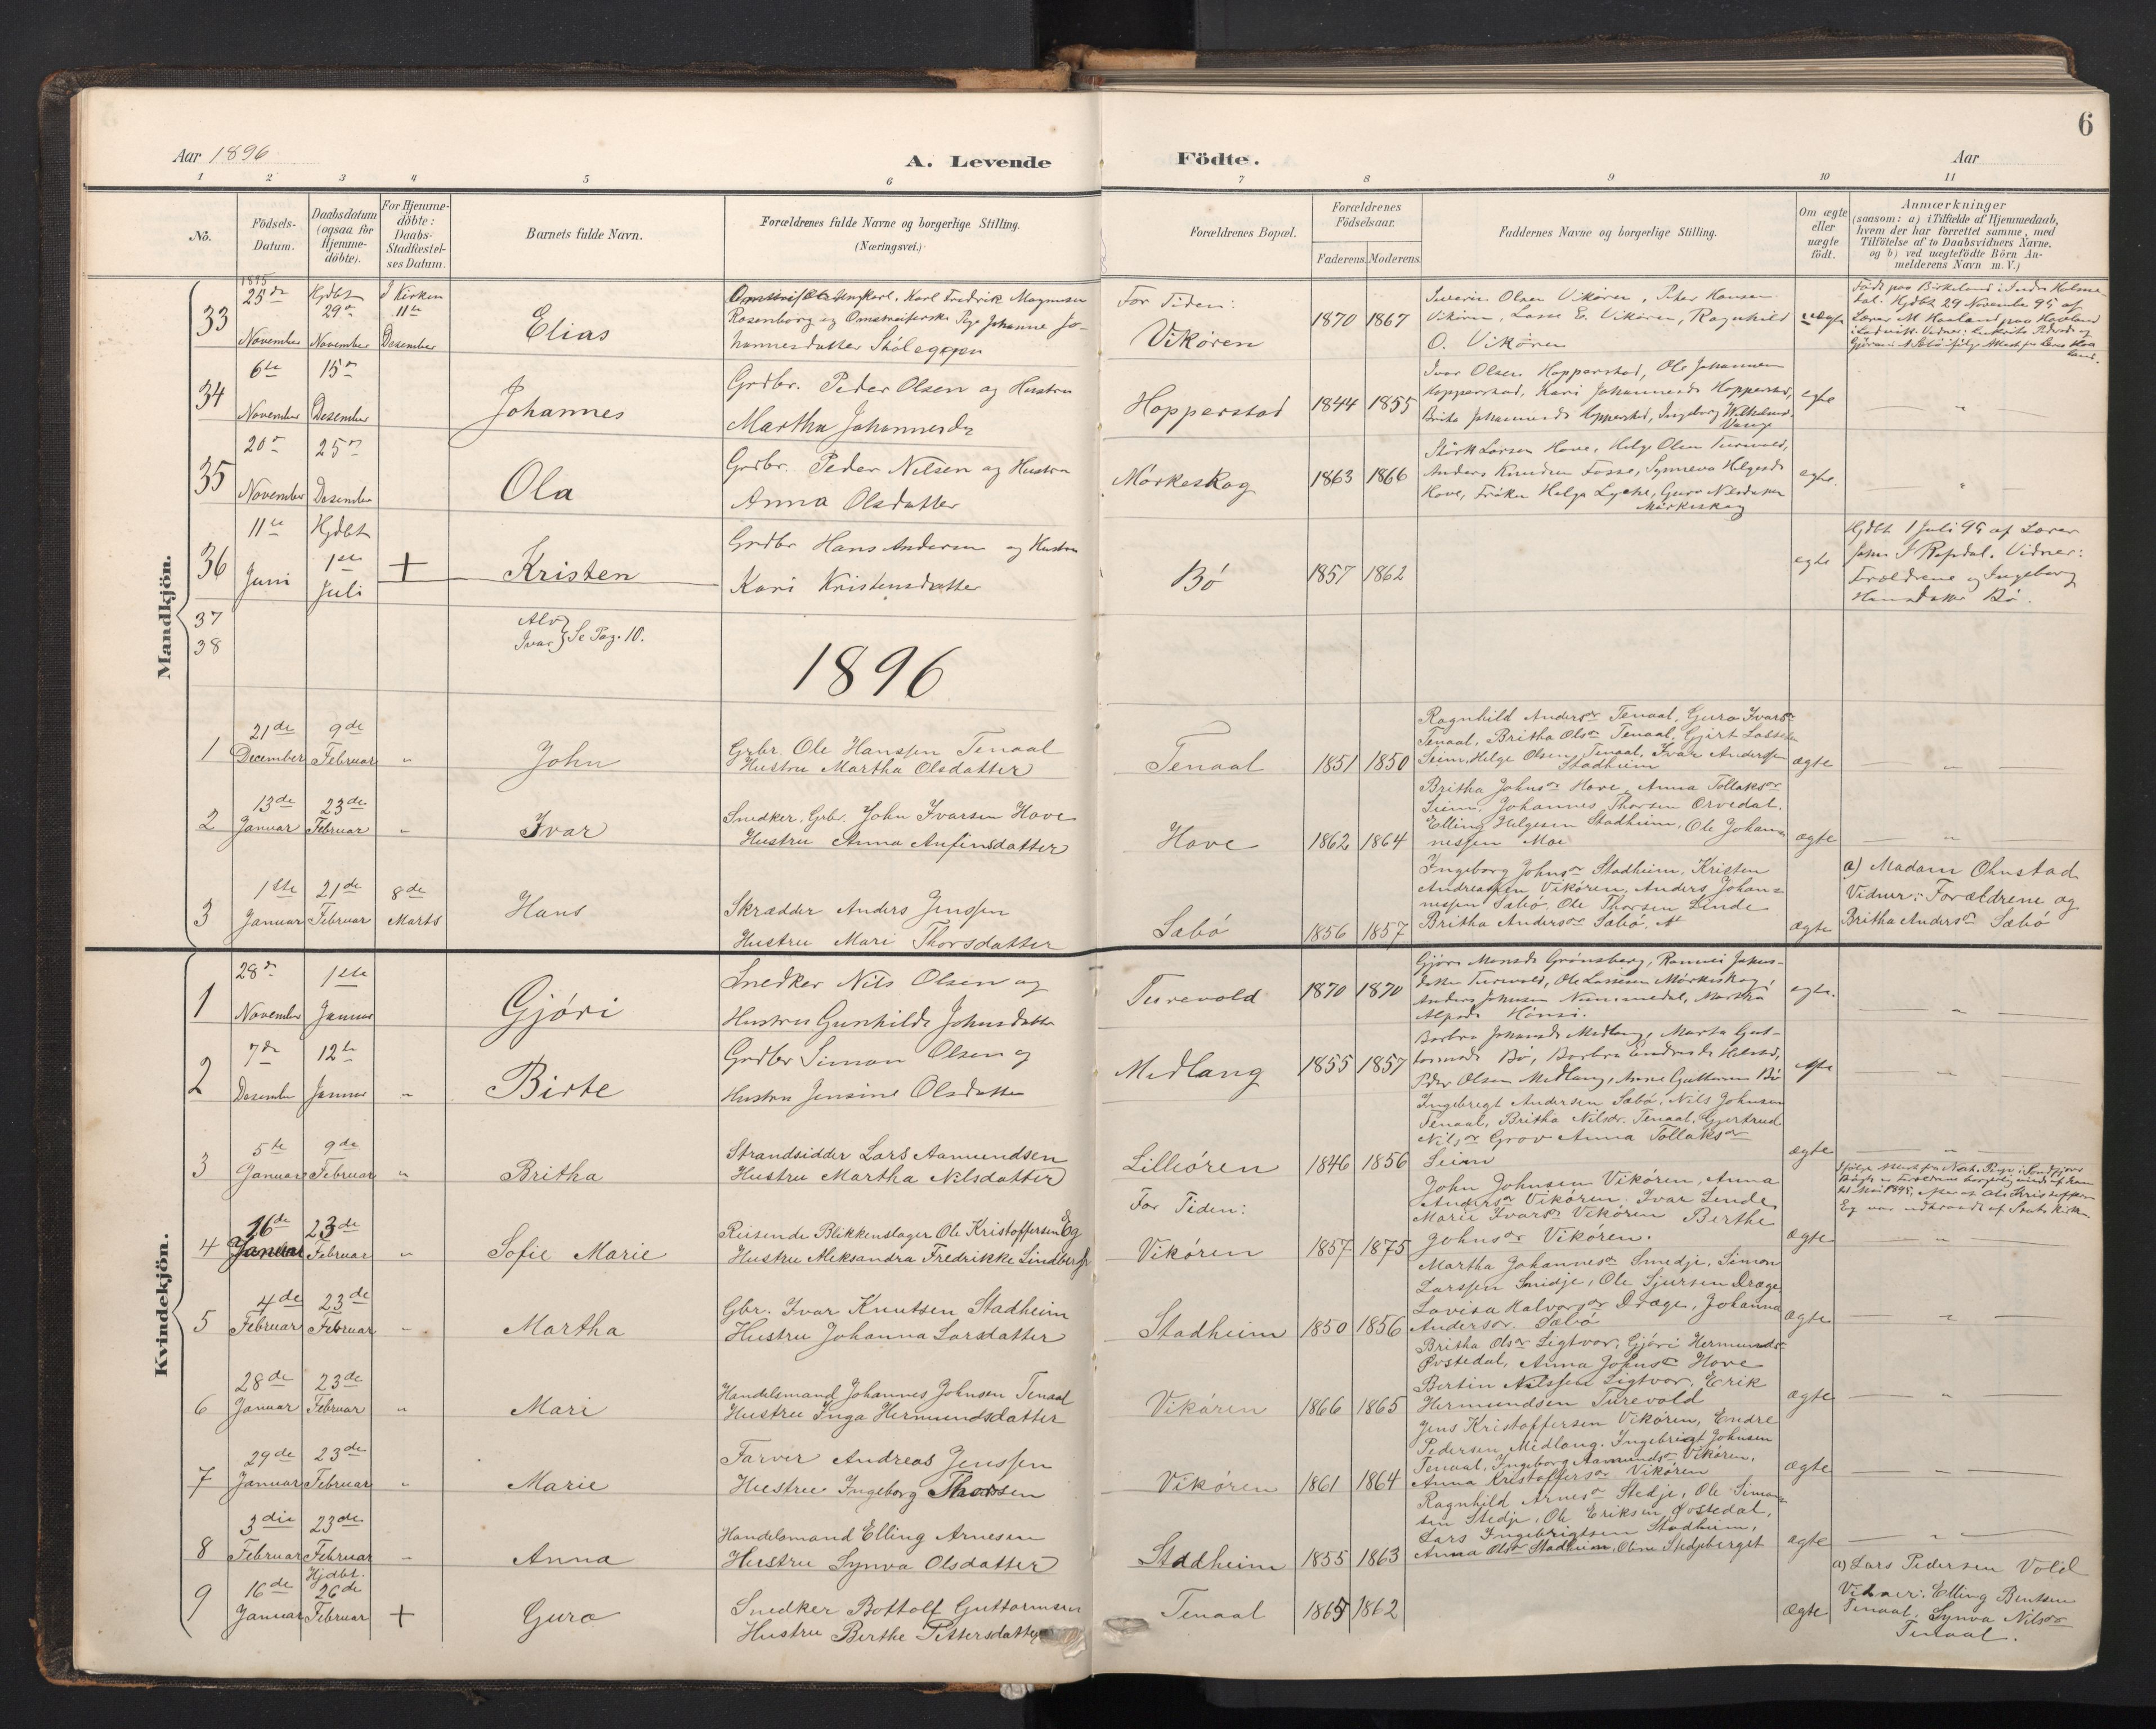 6
Aar 1896
A. Levende
Födte.
Aar
1 2 3 4 5 6 7 8 9 10 11
No.
Födsels-Datum.
Daabsdatum (ogsaa for Hjemme-döbte).
For Hjemme-döbte: Daabs-Stadfæstel-ses Datum.
Barnets fulde Navn.
Forældrenes fulde Navne og borgerlige Stilling. (Næringsvei.)
Forældrenes Bopæl.
Forældrenes Födselsaar.
Faderens. Moderens.
Faddernes Navne og borgerlige Stilling.
Om ægte eller uægte födt.
Anmærkninger
(saasom: a) i Tilfælde af Hjemmedaab,
hvem der har forrettet samme, med
Tilföielse af to Daabsvidners Navne,
og b) ved uægtefödte Börn An-
melderens Navn m. V.)
Mandkjön.
33
1895
25de November
Hjdbt 29de November
I Kirken 11te Desember
Elias
Karl Fredrik Magnussen
Rosenborg og Omstreiferske Johanne Jo-
hannesdatter
For Tiden:
Vikören
1870 1867
Severin Olsen Vikören, Peter Hansen
Vikören, Lasse E. Vikören, Ragnhild
O. Vikören
uægte
Födt paa Birkeland i Indre Holme-
dal. Hjdbt 29 November 95 af
Lærer M Haaland paa Haaland
34
6te November
15de Desember
Johannes
Grdbr. Peder Olsen og Hustru
Martha Johannesdr
Hopperstad
1844 1855
Ivar Olsen Hopperstad, Ole Johannesen
Hopperstad, Kari Johannesdr Hopperstad,
Brita Johannesdr Hopperstad, Ingeborg
egte
"
35
20de November
25de Desember
Ola
Grdbr. Peder Nilsen og Hustru
Anna Olsdatter
Mörkeskog
1863 1866
Larsen Hove, Helge Olsen Turvold,
Anders Knudsen Fosse, Synneva Helgesdr
Hove, Fröken Helga Lyche, Guro Nilsdatter
Mörkeskog
egte.
"
36
11te Juni
Hjdbt 1ste Juli
+
Kristen
Grdbr Hans Andersen og Hustru
Kari Kristensdatter
Bö
1857 1862
egte
Hjdbt 1 Juli 95 af Lærer
Vidner:
Forældrene og Ingeborg
Bö.
37 Alv
38 Ivar } Se Pag. 10.
1896
1
21de December
9de Februar
"
John
Grbr. Ole Hanssen Tenaal
Hustru Martha Olsdatter
Tenaal
1851 1850
Ragnhild Andersdr Tenaal, Guro Ivarsdr
Tenaal, Britha Olsdr Tenaal, Gjert Lassesen
Seim, Helge Olsen Tenaal, Ivar Anderssen
Stadheim
ægte
— " —
2
13de Januar
23de Februar
"
Ivar
Snedker, Grbr. John Ivarsen Hove
Hustru Anna Anfinsdatter
Hove
1862 1864
Britha Johnsdr Hove, Anna Tollaksdr
Seim, Johannes Thorsen Orvedal.
Elling Helgesen Stadheim, Ole Johan-
nessen Moe
ægte
— " —
3
1ste Januar
21de Februar
8de Marts
Hans
Skrædder Anders Jenssen
Hustru Mari Thorsdatter
Sæbö
1856 1857
Ingeborg Johnsdr Stadheim, Kristen
Andreassen Vikören, Anders Johan-
nessen Sæbö, Ole Thorsen Linde
Britha Andersdr Sæbö.
ægte
a) Madam Ohnstad
Vidner: Forældrene og
Britha Andersdr Sæbö
Kvindekjön.
1
28de November
1ste Januar
Gjöri
Snedker Nils Olsen og
Hustru Gunhilde Johnsdatter
Turevold
1870 1870
Gjöri Monsdr Grönsberg,
Turvold, Ole Larsen Mörkeskog,
Anders Johnsen Nummedal, Martha
Hönsi.
egte.
— " —
2
7de Desember
12te Januar
"
Birte
Grdbr Simon Olsen og
Hustru Jensine Olsdatter
Midlang
1855 1857
Barbra Johansdr Midlang, Marta Gut-
tormsdr Bö, Barbra Endresdr
Peder Olsen Midlang, Arne Guttormsen Bö
egte
— " —
3
5te Januar
9de Februar
"
Britha
Strandsidder Lars Aamundsen
Hustru Martha Nilsdatter
Lilleören
1846 1856
Ingebregt Andersen Sæbö, Nils Johnsen
Tenaal, Britha Nilsdr. Tenaal, Gjertrud
Nilsdr Grov Anna Tollaksdr
Seim
ægte
— " —
4
16de Januar
23de Februar
"
Sofie Marie
Reisende Blikkenslager Ole Kristoffersen Eg
Hustru Aleksandra Fredrikke Lindberg
For Tiden:
Vikören
1857 1875
John Johnsen Vikören, Anna
Andersdr Vikören. Ivar Linde
Marie Ivarsdr Vikören Berthe
Johnsdr Vikören.
ægte
Eg var udtraadt af Stats Kirken
— " —
5
4de Februar
23de Februar
"
Martha
Gbr. Ivar Knutsen Stadheim
Hustru Johanna Larsdatter
Stadheim
1850 1856
Martha Johannesdr Smedje, Simon
Larssen Smidje, Ole Sjursen Dræge
Lovisa Halvorsdr Dræge, Johanna
Andersdr. Sæbö
ægte
— " —
6
28de Januar
23de Februar
"
Mari
Handelsmand Johannes Johnsen Tenaal
Hustru Inga Hermundsdatter
Vikören
1866 1865
Britha Olsdr Ligtvor, Gjöri Hermundsdr
Östedal, Anna Johnsdr Hove
Bertin Nilssen Ligtvor, Erik
Hermundsen Turevold
ægte
— " —
7
29de Januar
23de Februar
"
Marie
Farver Andreas Jenssen
Hustru Ingeborg Thorsen
Vikören
1861 1864
Jens Kristoffersen Vikören, Endre
Pedersen Midlang. Ingebrigt Johnsen
Tenaal, Ingeborg Aamundsdr Vikören,
Anna Kristoffersdr Vikören
ægte
— " —
8
3die Februar
23de Februar
"
Anna
Handelsmand Elling Arnesen
Hustru Synva Olsdatter
Stadheim
1855 1863
Ragnhild Arnesdr Stedje, Ole Simon-
sen Stedje, Ole Eriksen Östedal,
Lars Ingebrigtsen Stadheim,
Anna Olsdr Stadheim, Oline Stedjeberget
ægte
— " —
9
16de Januar
Hjdbt. 26de Februar
+
Guro
Snedker Bottolf Guttormsen
Hustru Berthe Pettersdatter
Tenaal
1865 1862
ægte
a) Lars Pedersen Vold
Vidner: Elling Bentsen
Tenaal, Synva Nilsdr
Tenaal.